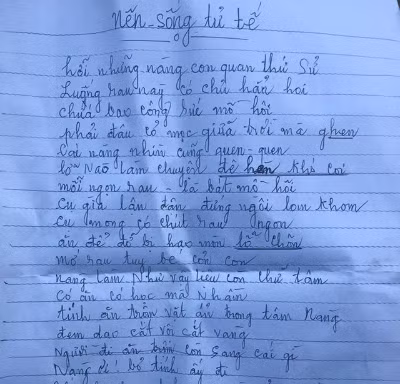 nên sống tử tế
hỡi những nàng con quan thứ sử
Luống rau này có chủ hẳn hoi
chứa bao công sức mồ hôi
phải đâu cỏ mọc giữa trời mà ghen
Coi nàng nhìn cũng quen quen
lỡ Nào làm chuyện đê hèn khó coi
mỗi ngọn rau - là bát mồ hôi
cụ già lần dần đứng ngồi lom khom
cụ mong có chút rau ngon
ăn để đỡ bị hao mòn
mớ rau tuy bé cỏn con
nàng làm Như vậy liệu còn chữ tâm
có ăn có học mà Nhầm
tính ăn trộm vặt ẩn trong tâm Nàng
đem dao cắt vội cắt vàng
Người đi ăn trộm còn sang cái gì
Nàng ơi bỏ tính ấy đi